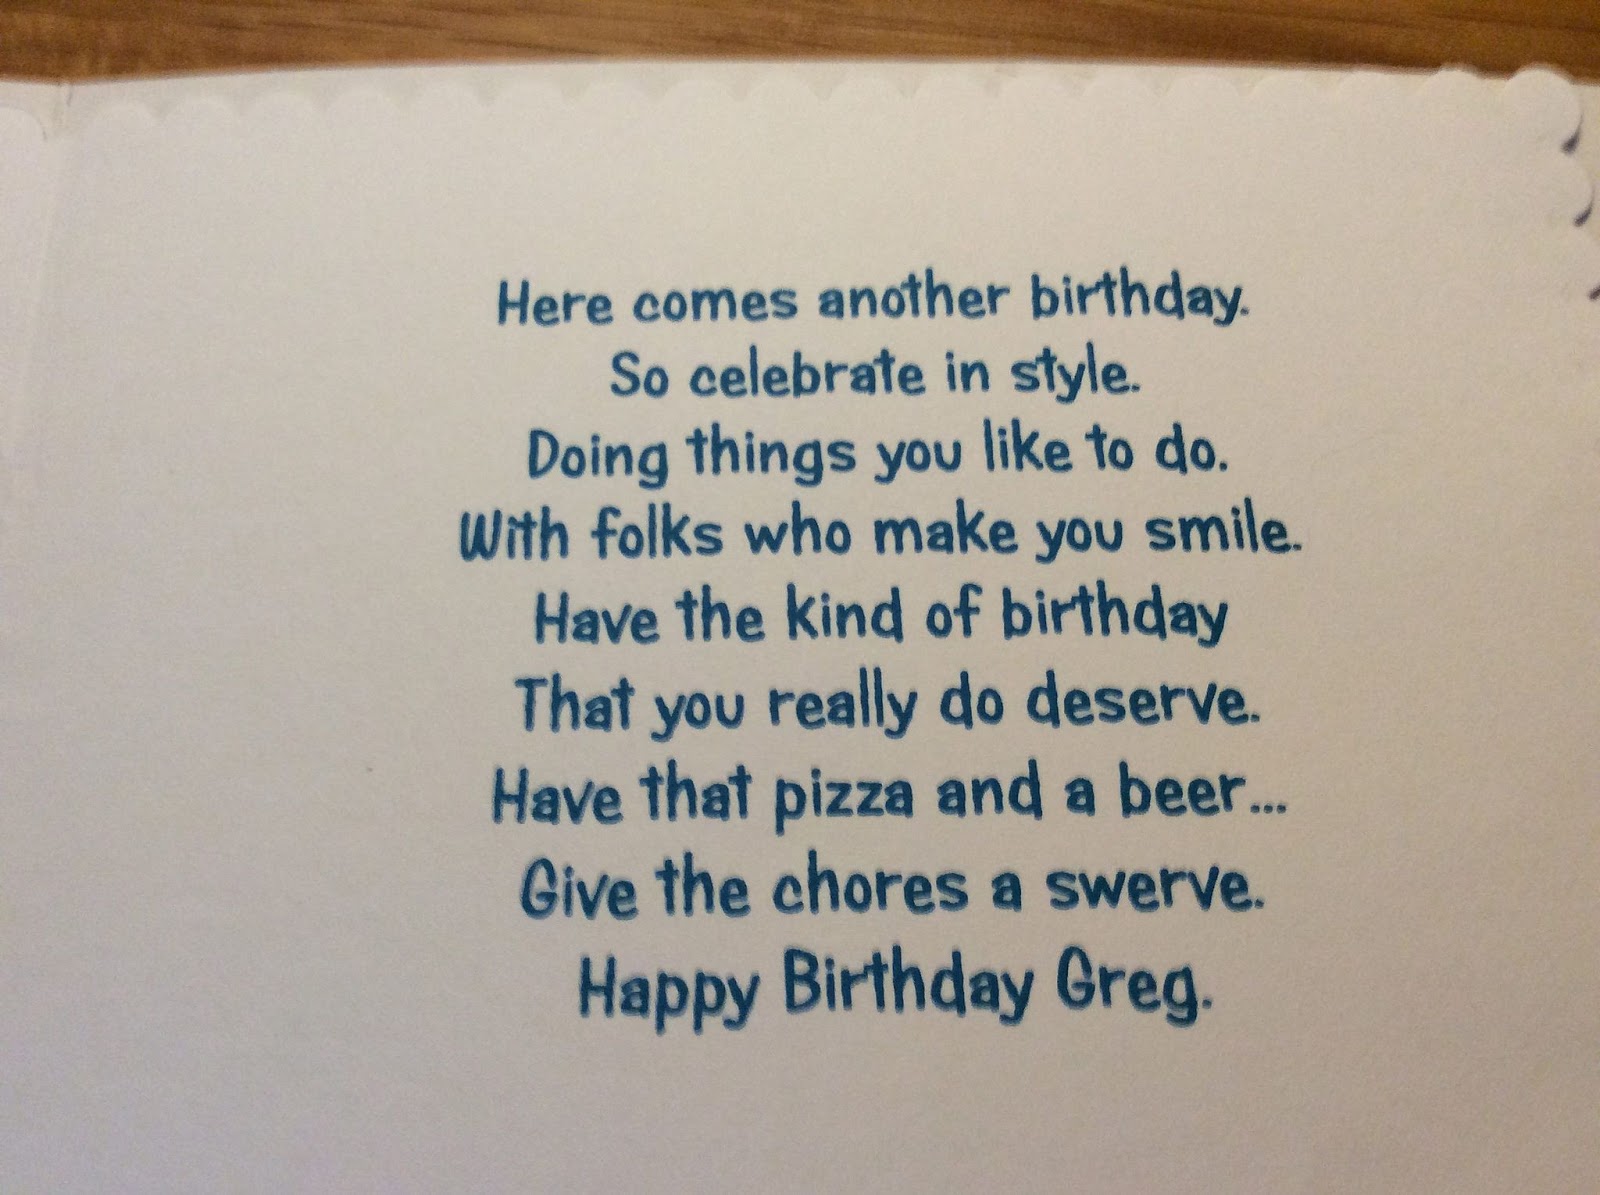 Here comes another birthday.
So celebrate in style.
Doing things you like to do.
With folks who make you smile.
Have the kind of birthday
That you really do deserve.
Have that pizza and a beer...
Give the chores a swerve.
Happy Birthday Greg.